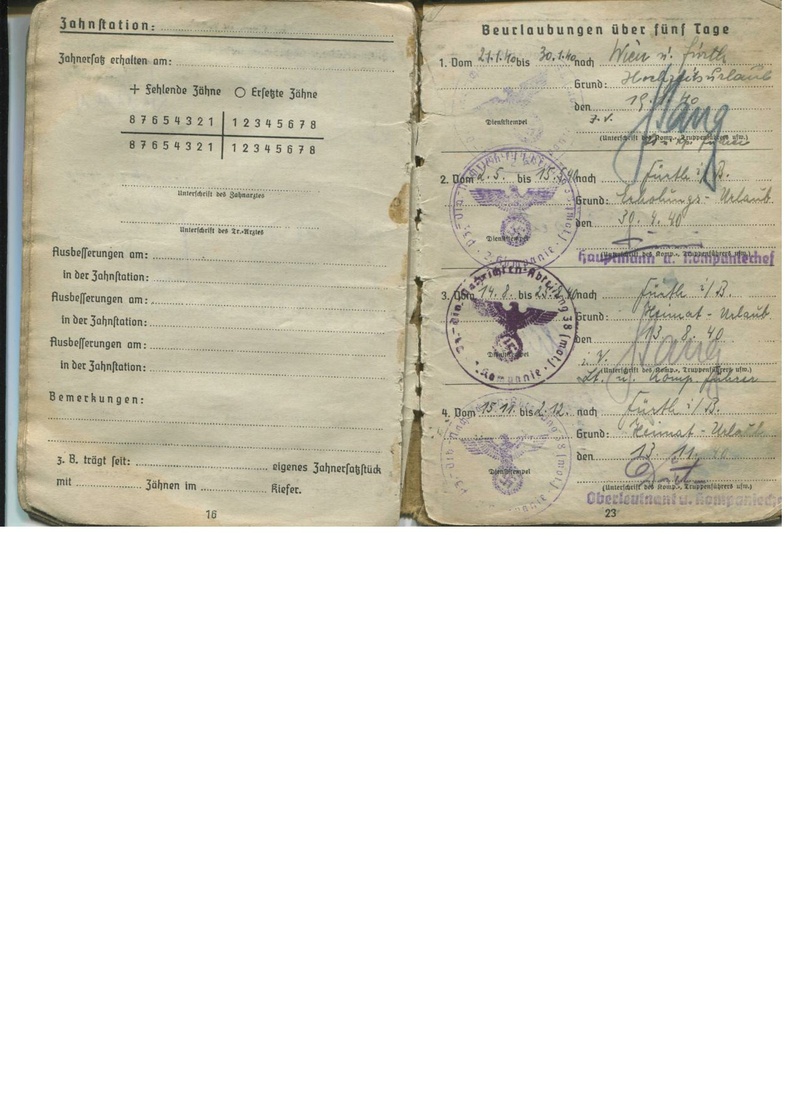 Zahnstation:
Zahnersatz erhalten am:
+ Fehlende Zähne ○ Ersetzte Zähne
8 7 6 5 4 3 2 1 | 1 2 3 4 5 6 7 8
8 7 6 5 4 3 2 1 | 1 2 3 4 5 6 7 8
Unterschrift des Zahnarztes
Unterschrift des Tr.-Arztes
Ausbesserungen am:
in der Zahnstation:
Ausbesserungen am:
in der Zahnstation:
Ausbesserungen am:
in der Zahnstation:
Bemerkungen:
z. B. trägt seit: eigenes Zahnersatzstück
mit Zähnen im Kiefer.
16
Beurlaubungen über fünf Tage
1. Vom 21.1.40 bis 30.1.40 nach Wien u. Fürth
Grund: Hochzeitsurlaub
den 19.1.40
Dienststempel
(Unterschrift des Komp.-, Truppenführers usw.)
2. Vom 2.5. bis 15.5.40 nach Fürth i/B.
Grund: Erholungs-Urlaub
den 30.4.40
Dienststempel
(Unterschrift des Komp.-, Truppenführers usw.)
Hauptmann u. Kompaniechef
3. Vom 14.8. bis nach Fürth i/B.
Grund: Heimat-Urlaub
den 13.8.40
Dienststempel
i.V.
(Unterschrift des Komp.-, Truppenführers usw.)
Lt. u. Komp. führer
Pz.-Div.-Nachrichten-Abteilung 38 (mot.)
Kompanie
4. Vom 15.11. bis 2.12. nach Fürth i/B.
Grund: Heimat-Urlaub
den 13.11.40
Dienststempel
(Unterschrift des Komp.-, Truppenführers usw.)
Oberleutnant u. Kompaniechef
23